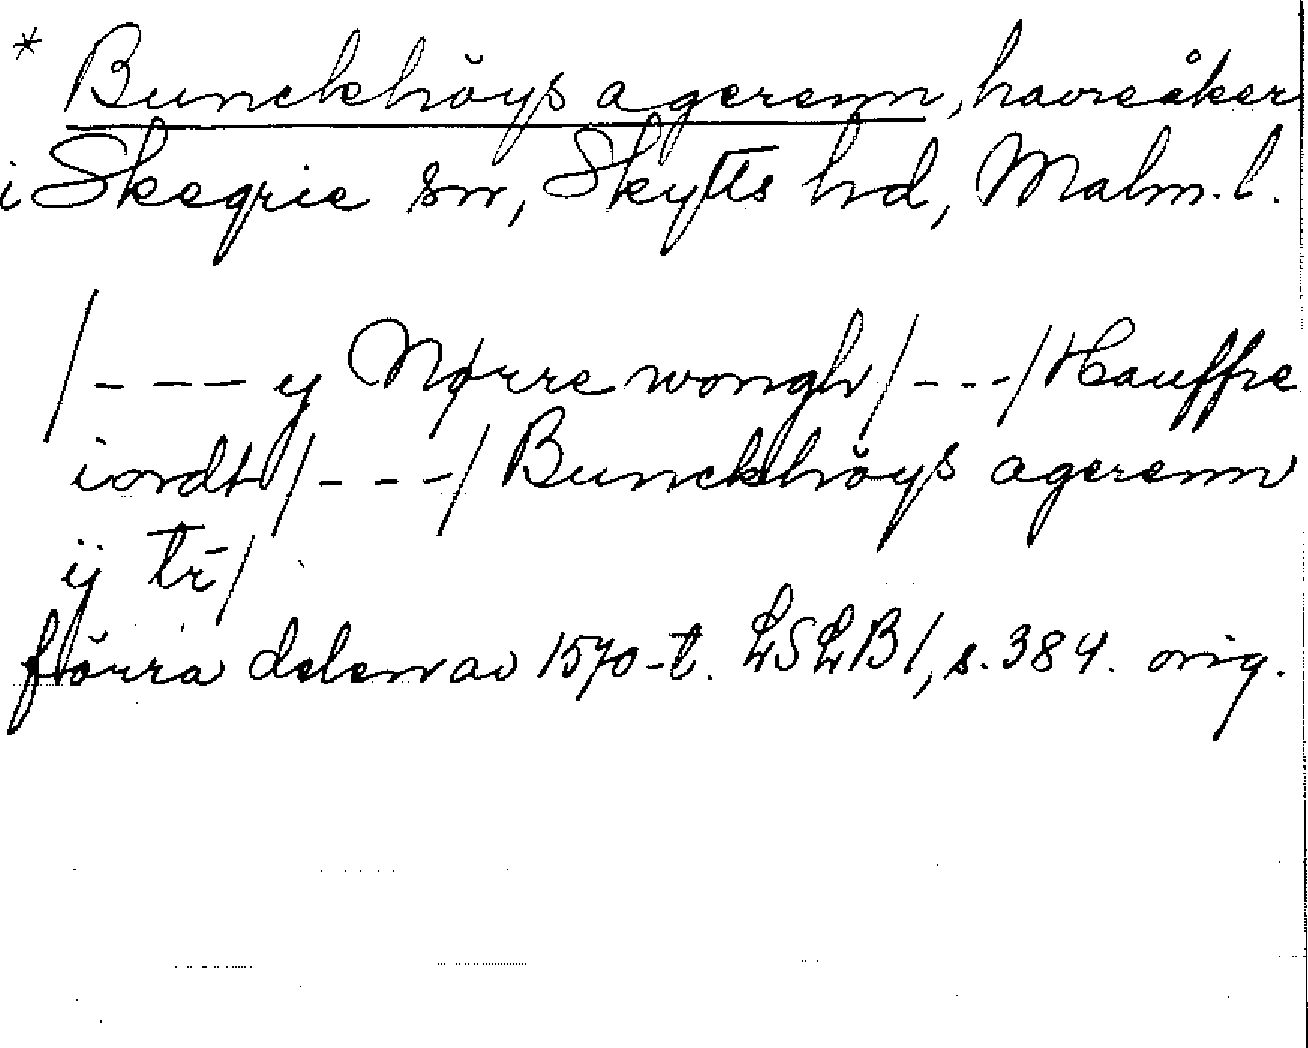 * Bunckhöys agerenn, havreåker
i Skegrie sn, Skytts hd, Malm. l.
/---y Nørre wongh/---/Hauffre
iordt/---/Bunckhöys agerenn
ij tr̄/
förra delen av 1570-t. LSLB1, s. 384. orig.